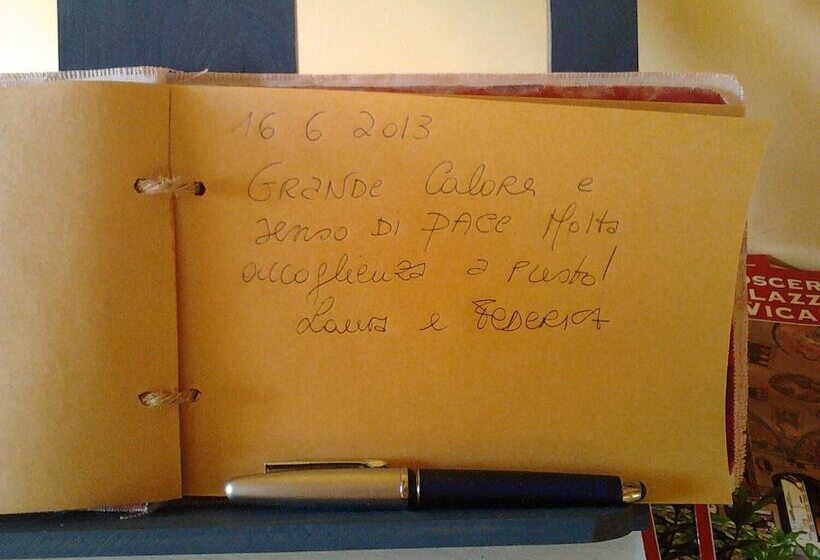 16 6 2013
GRANDE Calore e
senso DI PACE Molta
accoglienza a presto!
Laura e FEDERICA
OSCER
LAZZ
VICA